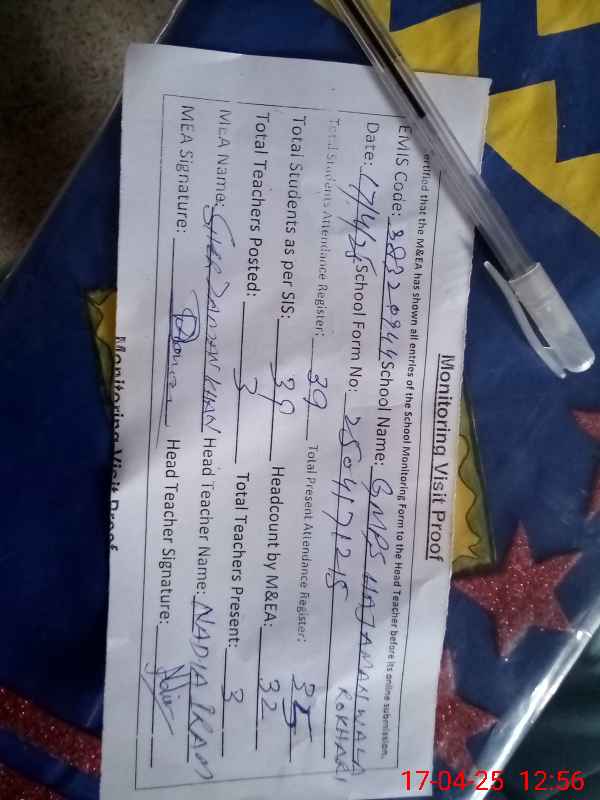 Monitoring Visit Proof
ertified that the M&EA has shown all entries of the School Monitoring Form to the Head Teacher before its online submission.
EMIS Code: 38320944 School Name: GMPS HAJAMANWALA ROKHARI
Date: 17/4/25 School Form No: 2504171215
Total Students Attendance Register: 39 Total Present Attendance Register: 35
Total Students as per SIS: 39 Headcount by M&EA: 32
Total Teachers Posted: 3 Total Teachers Present: 3
MEA Name: SHER ZAMAN KHAN Head Teacher Name: NADIA IRAM
MEA Signature: Head Teacher Signature:
Monitoring Visit Proof
17-04-25 12:56